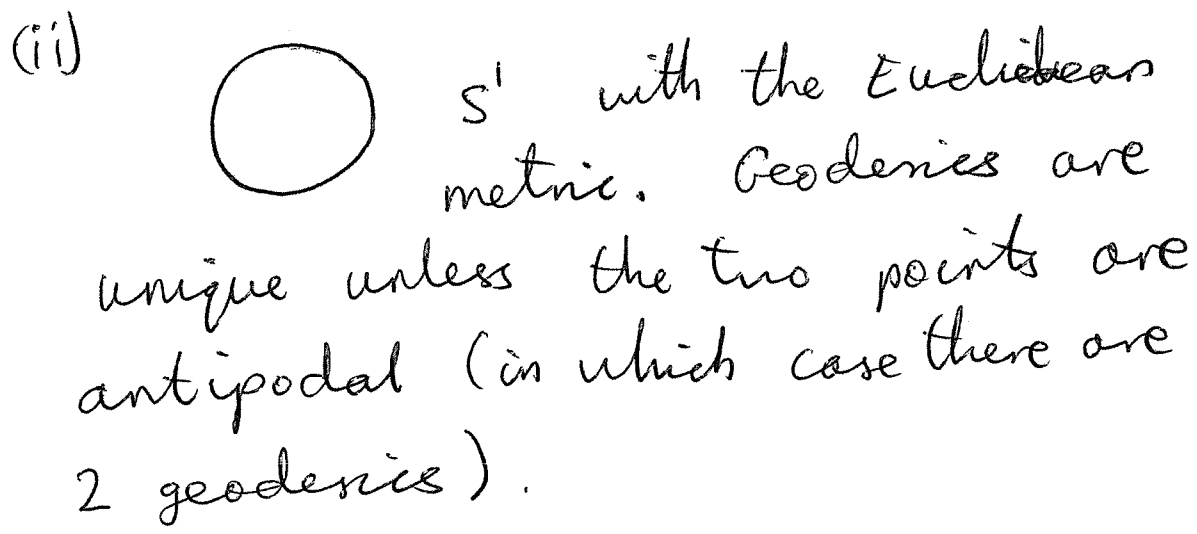 (ii)
S¹ with the Euclidean
metric. Geodesics are
unique unless the two points are
antipodal (in which case there are
2 geodesics).